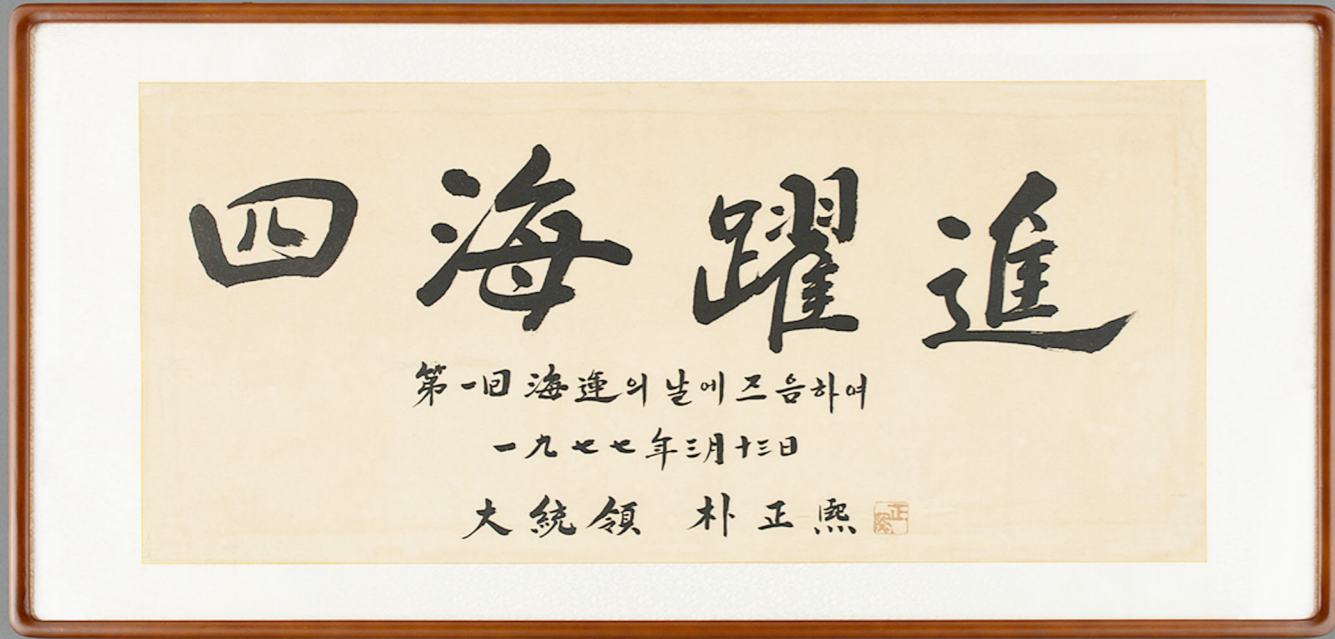 四海躍進
第一回 海運의 날에 즈음하여
一九七七年三月十三日
大統領 朴正熙
正熙